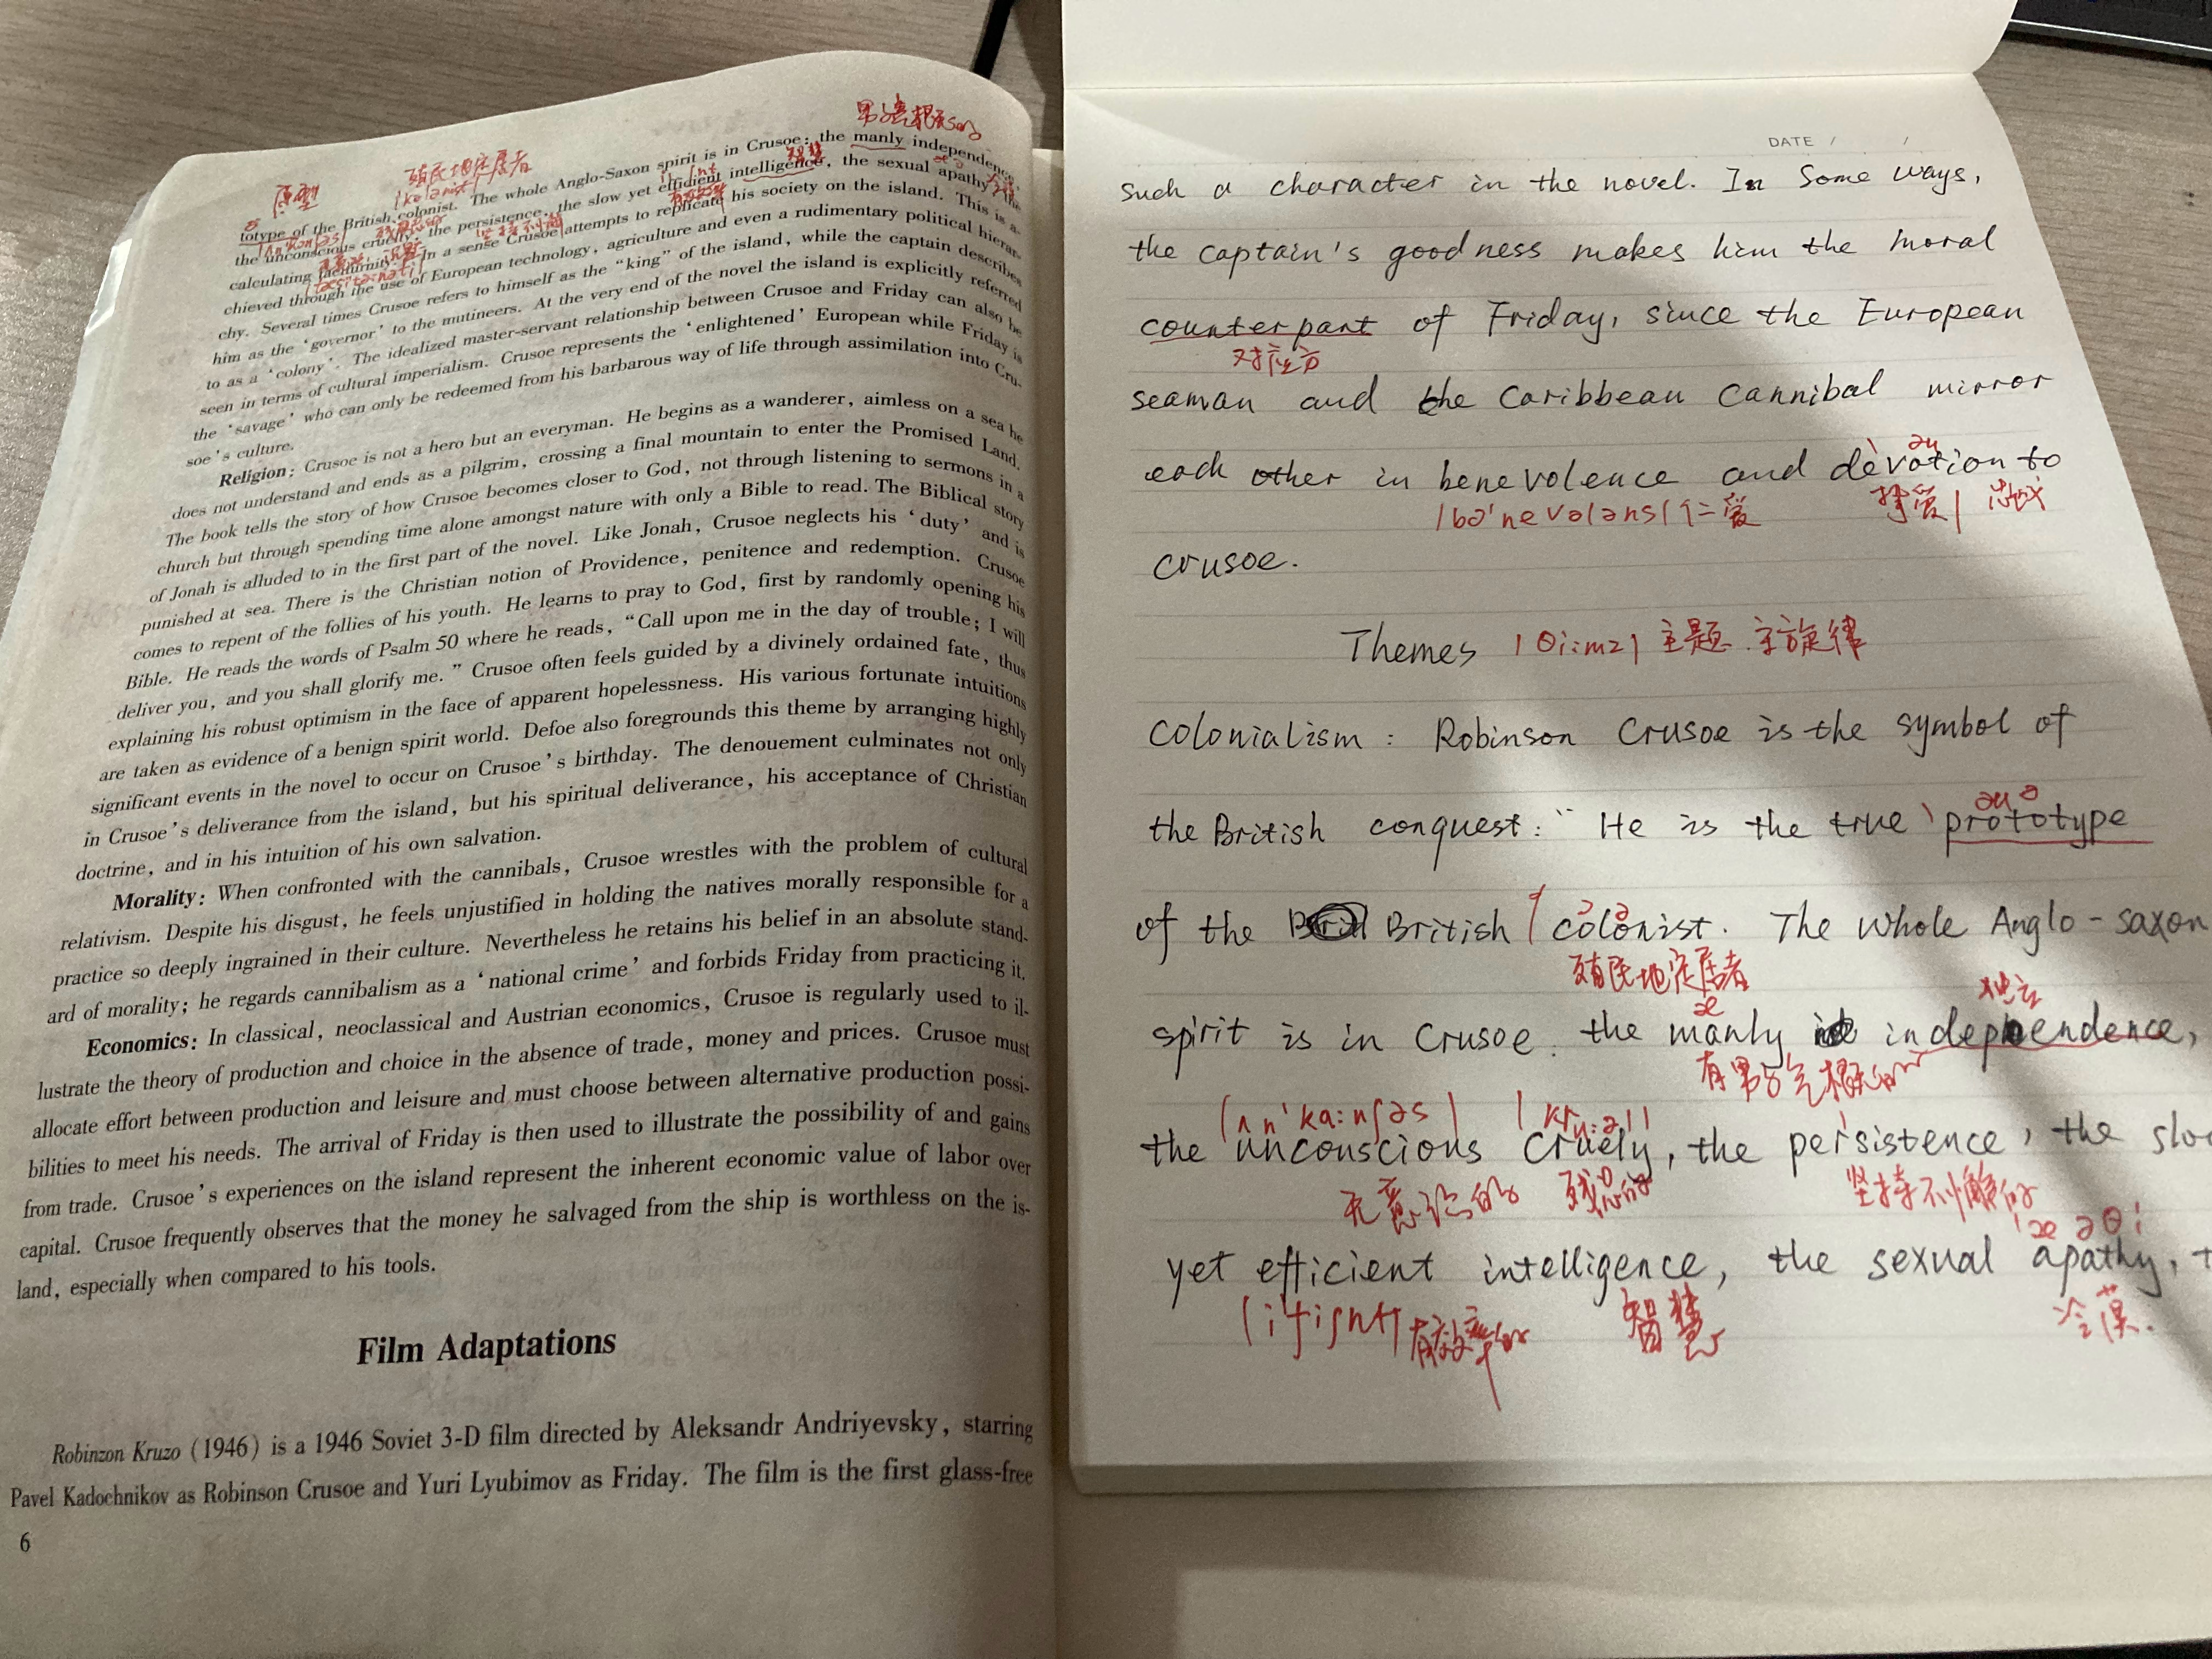 男子气概的
殖民地定居者
原型
totype of the British colonist. The whole Anglo-Saxon spirit is in Crusoe: the manly independence,
the unconscious cruelty, the persistence, the slow yet efficient intelligence, the sexual apathy, the
calculating taciturnity.” In a sense Crusoe attempts to replicate his society on the island. This is a-
chieved through the use of European technology, agriculture and even a rudimentary political hierar-
chy. Several times Crusoe refers to himself as the “king” of the island, while the captain describes
him as the ‘governor’ to the mutineers. At the very end of the novel the island is explicitly referred
to as a ‘colony’. The idealized master-servant relationship between Crusoe and Friday can also be
seen in terms of cultural imperialism. Crusoe represents the ‘enlightened’ European while Friday is
the ‘savage’ who can only be redeemed from his barbarous way of life through assimilation into Cru-
soe’s culture.
Religion: Crusoe is not a hero but an everyman. He begins as a wanderer, aimless on a sea he
does not understand and ends as a pilgrim, crossing a final mountain to enter the Promised Land.
The book tells the story of how Crusoe becomes closer to God, not through listening to sermons in a
church but through spending time alone amongst nature with only a Bible to read. The Biblical story
of Jonah is alluded to in the first part of the novel. Like Jonah, Crusoe neglects his ‘duty’ and is
punished at sea. There is the Christian notion of Providence, penitence and redemption. Crusoe
comes to repent of the follies of his youth. He learns to pray to God, first by randomly opening his
Bible. He reads the words of Psalm 50 where he reads, “Call upon me in the day of trouble; I will
deliver you, and you shall glorify me.” Crusoe often feels guided by a divinely ordained fate, thus
explaining his robust optimism in the face of apparent hopelessness. His various fortunate intuitions
are taken as evidence of a benign spirit world. Defoe also foregrounds this theme by arranging highly
significant events in the novel to occur on Crusoe’s birthday. The denouement culminates not only
in Crusoe’s deliverance from the island, but his spiritual deliverance, his acceptance of Christian
doctrine, and in his intuition of his own salvation.
Morality: When confronted with the cannibals, Crusoe wrestles with the problem of cultural
relativism. Despite his disgust, he feels unjustified in holding the natives morally responsible for a
practice so deeply ingrained in their culture. Nevertheless he retains his belief in an absolute stand-
ard of morality; he regards cannibalism as a ‘national crime’ and forbids Friday from practicing it.
Economics: In classical, neoclassical and Austrian economics, Crusoe is regularly used to il-
lustrate the theory of production and choice in the absence of trade, money and prices. Crusoe must
allocate effort between production and leisure and must choose between alternative production possi-
bilities to meet his needs. The arrival of Friday is then used to illustrate the possibility of and gains
from trade. Crusoe’s experiences on the island represent the inherent economic value of labor over
capital. Crusoe frequently observes that the money he salvaged from the ship is worthless on the is-
land, especially when compared to his tools.
Film Adaptations
Robinzon Kruzo (1946) is a 1946 Soviet 3-D film directed by Aleksandr Andriyevsky, starring
Pavel Kadochnikov as Robinson Crusoe and Yuri Lyubimov as Friday. The film is the first glass-free
6
DATE / /
such a character in the novel. In some ways,
the captain's goodness makes him the moral
counterpart of Friday, since the European
对应方
seaman and the Caribbean cannibal mirror
each other in benevolence and devotion to
|bə'nevələns| 仁爱 挚爱| 忠诚
crusoe.
Themes |θi:mz| 主题 主旋律
Colonialism: Robinson Crusoe is the symbol of
the British conquest: “He is the true prototype
of the British colonist. The Whole Anglo-saxon
殖民地定居者
独立
spirit is in Crusoe: the manly independence,
有男子气概的
|ʌn'ka:nʃəs| |kru:əl|
the unconscious cruely, the persistence, the slow
无意识的 残忍的 坚持不懈的
'æ ə θi
yet efficient intelligence, the sexual apathy, t
|i'fiʃnt| 有效率的 智慧 冷漠.